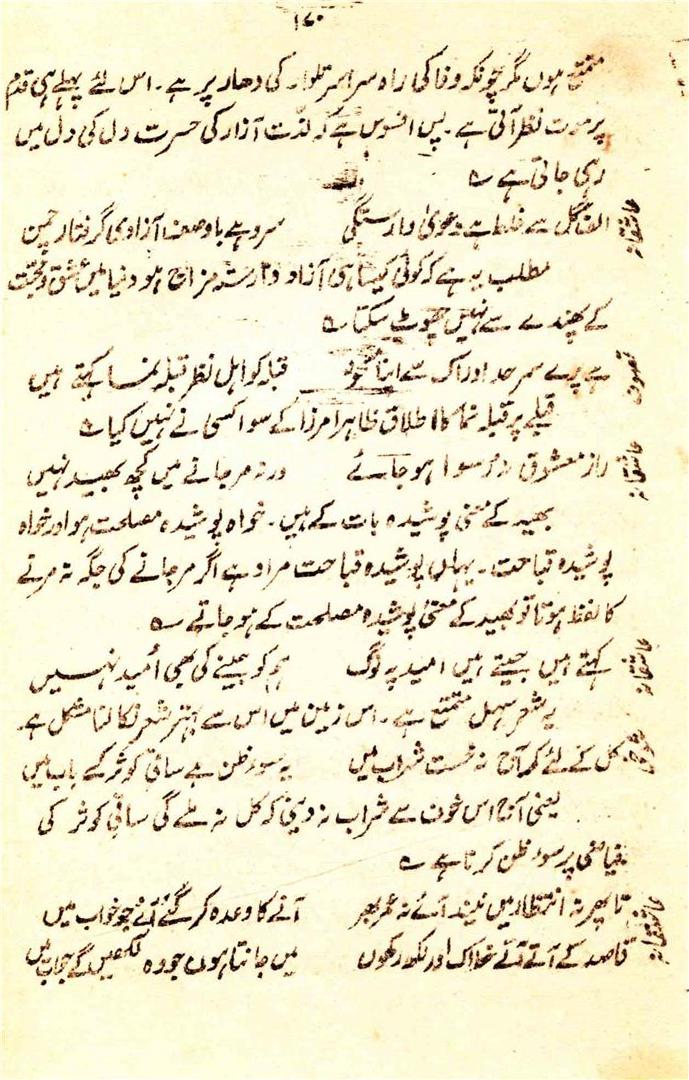 ۱۷۰
متمتع ہوں مگر چونکہ وفا کی راہ سراسر تلوار کی دھار پر ہے۔ اس لئے پہلے ہی قدم
پر موت نظر آتی ہے۔ پس افسوس ہے کہ لذت آزار کی حسرت دل کی دل میں
رہی جاتی ہے ؎
عاشقانہ
الفت گل سے غلط ہے دعویٰ وارستگی سرو ہے باوصف آزادی گرفتار چمن
مطلب یہ ہے کہ کوئی کیسا ہی آزاد و وارستہ مزاج ہو دنیا میں عشق و محبت
کے پھندے سے نہیں چھوٹ سکتا ؎
تصوف
ہے پرے سرحد ادراک سے اپنا مسجود قبلہ کو اہل نظر قبلہ نما کہتے ہیں
قبلے پر قبلہ نما کا اطلاق ظاہرا مرزا کے سوا کسی نے نہیں کیا ؎
عاشقانہ
راز معشوق نہ رسوا ہو جائے ورنہ مر جانے میں کچھ بھید نہیں
بھید کے معنی پوشیدہ بات کے ہیں۔ خواہ پوشیدہ مصلحت ہو اور خواہ
پوشیدہ قباحت۔ یہاں پوشیدہ قباحت مراد ہے اگر مر جانے کی جگہ نہ مرنے
کا لفظ ہوتا تو بھید کے معنی پوشیدہ مصلحت کے ہو جاتے ؎
عاشقانہ
کہتے ہیں جیتے ہیں امید پہ لوگ ہم کو جینے کی بھی اُمید نہیں
یہ شعر سہل ممتنع ہے۔ اس زمین میں اس سے بہتر شعر نکالنا مشکل ہے
شوخی
کل کے لئے کر آج نہ خست شراب میں یہ سوء ظن ہے ساقی کوثر کے باب میں
یعنی آج اس خوف سے شراب نہ دینی کہ کل نہ ملے گی ساقی کوثر کی
فیاضی پر سوء ظن کرنا ہے ؎
عاشقانہ
تا پھر نہ انتظار میں نیند آئے عمر بھر آنے کا وعدہ کر گئے آئے جو خواب میں
قاصد کے آتے آتے خط اک اور لکھ رکھوں میں جانتا ہوں جو وہ لکھیں گے جواب میں